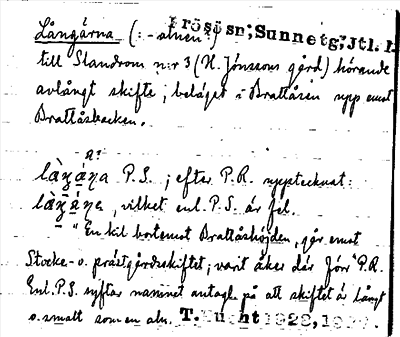 Frösö sn; Sunnetg; Jtl. l.
Långårna (: - alnen :)
till Standrom n:r 3 (N. Jönssons gård) hörande
avlångt skifte, beläget i Brattåsen upp emot
Brattåsbacken.
P.S. ; efter P.R. upptecknat:
, vilket enl. P.S. är fel.
"En kil bortemot Brattåshöjden, går emot
Stocke- o. prästgårdsskiftet; varit åker där förr" P.R.
Enl. P.S. syftar namnet antagl. på att skiftet är långt
o. smalt som en aln. T. 1928, 19